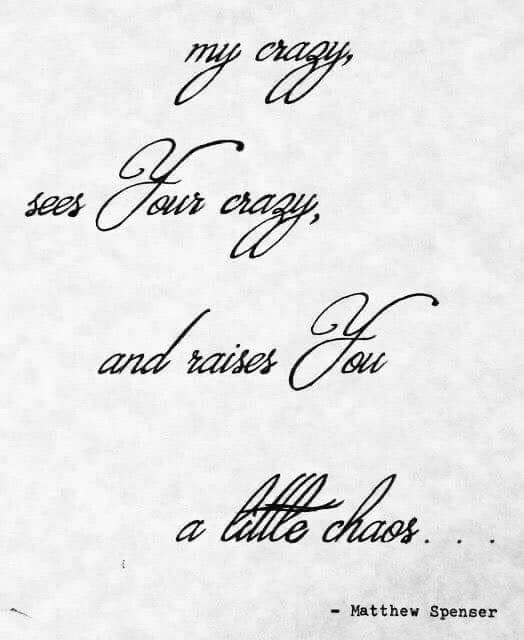 my crazy,
sees Your crazy,
and raises You
a little chaos. . .
- Matthew Spenser